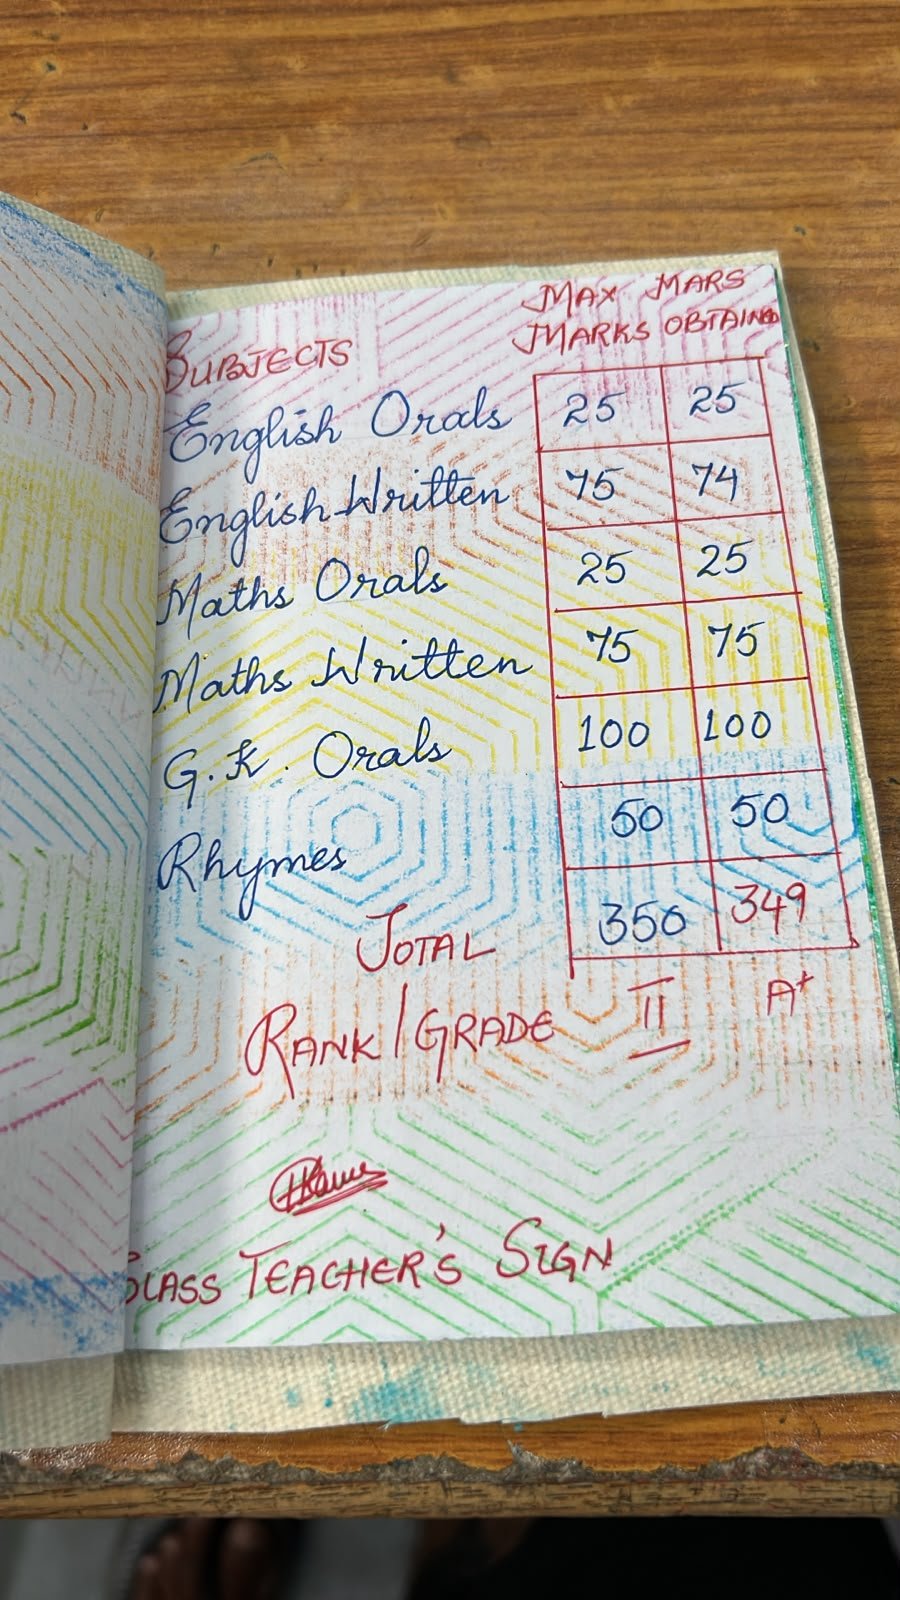 MAX MARS
SUBJECTS MARKS OBTAINED
English Orals 25 25
English Written 75 74
Maths Orals 25 25
Maths Written 75 75
G.K. Orals 100 100
Rhymes 50 50
TOTAL 350 349
RANK/GRADE II A+
CLASS TEACHER'S SIGN